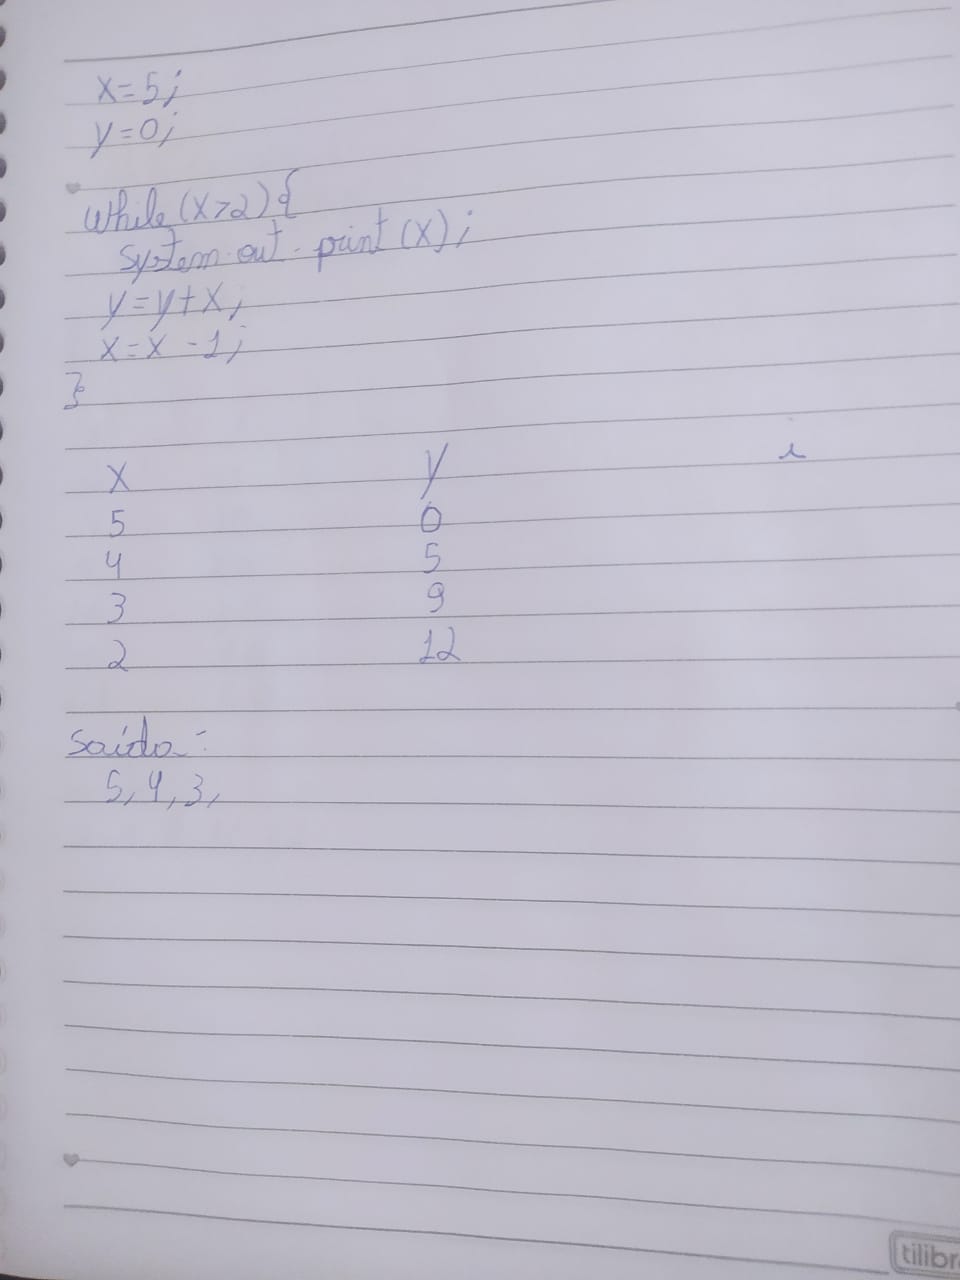 x=5;
y=0;
While (x>2) {
System.out.print (x);
y=y+x;
x=x -1;
}
x y i
5 0
4 5
3 9
2 12
Saída:
5, 4, 3,